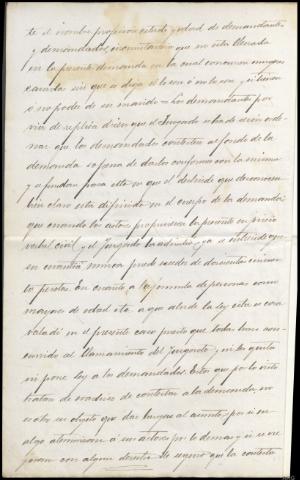 te el nombre profesion estado y edad de demandantes
y demandados, circunstancia que no está llenada
en la presente demanda en la cual concurren mugeres
casadas sin que se diga si lo son ó no lo son, y si tienen
ó no poder de su marido = Los demandantes por
via de réplica dicen que el Juzgado se ha de servir orde-
nar que los demandados contesten al fondo de la
demanda so pena de darlos conformes con la misma
y se fundan para ello en que el deslinde que desconocen
bien claro está definido en el cuerpo de la demanda:
que cuando los actores propusieron la presente en juicio
verbal civil, y el Juzgado la admitió, ya se entiende que
su cuantía nunca puede esceder de doscientas cincuen
ta pesetas. En cuanto á la fórmula de personas como
mayores de edad etc. a que alude la ley esta se con
valada en el presente caso puesto que todos han con-
currido al llamamiento del Juzgado, ni les quita
ni pone ley a los demandados. Estos que por lo visto
tratan de evadirse de contestar á la demanda, no
es otro su objeto que dar largas al asunto, por si en
algo atemorizan á los actores por lo demas, y si se cre
yeran con algun derecho. Es seguro que la contesta